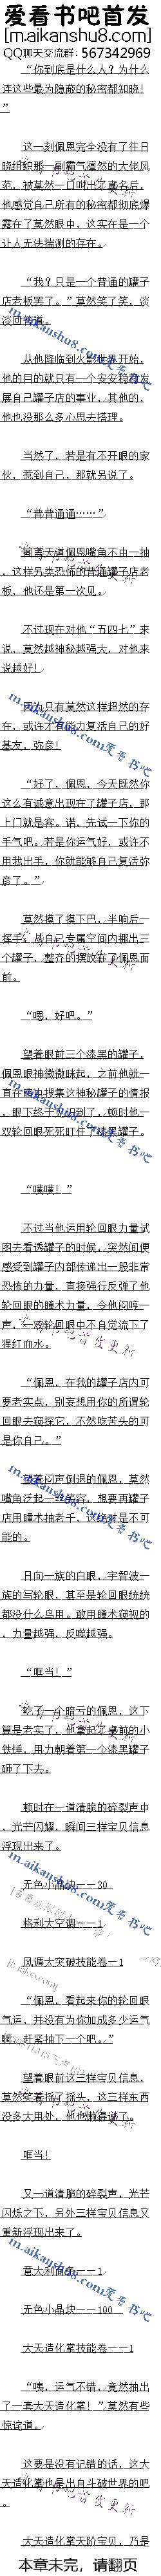 爱看书吧首发
[m.aikanshu8.com]
QQ聊天交流群：567342969
“你到底是什么人？为什么
连这些最为隐蔽的秘密都知晓！
”
这一刻佩恩完全没有了往日
晓组织那一副霸气凛然的大佬风
范，被莫然一口叫出了真名后，
他感觉自己所有的秘密都彻底爆
露在了莫然眼中，这实在是一个
让人无法揣测的存在。
“我？只是一个普通的罐子
店老板罢了。”莫然笑了笑，淡
淡回答道。
从他降临到火影世界开始，
他的目的就只有一个安安稳稳发
展自己罐子店的事业，其他的，
他也没那么多心思去搭理。
当然了，若是有不开眼的家
伙，惹到自己，那就另说了。
“普普通通……”
闻言天道佩恩嘴角不由一抽
，这样另类恐怖的普通罐子店老
板，他还是第一次见。
不过现在对他“五四七”来
说，莫然越神秘越强大，对他来
说越好！
因为只有莫然这样超然的存
在，或许才有能力复活自己的好
基友，弥彦！
“好了，佩恩，今天既然你
这么有诚意出现在了罐子店，那
上门就是宾。诺，先试一下你的
手气吧。若是你运气好，或许不
用我出手，你就能够自己复活弥
彦了。”
莫然摸了摸下巴，半响后一
挥手，从自己专属空间内挪出三
个罐子，整齐的摆放在了佩恩面
前。
“嗯，好吧。”
望着眼前三个漆黑的罐子，
佩恩眼神微微眯起，之前他就一
直在暗中搜集这神秘罐子的情报
，眼下终于见识到了，顿时他一
双轮回眼死死盯住了漆黑罐子。
“噗噗！”
不过当他运用轮回眼力量试
图去看透罐子的时候，突然间便
感受到罐子内部传递出一股非常
恐怖的力量，直接强行反弹了他
轮回眼的瞳术力量，令他闷哼一
声，一双轮回眼中不自觉流下了
猩红血水。
“佩恩，在我的罐子店内可
要老实点，别妄想用你的所谓轮
回眼去窥探它，不然吃苦头的可
是你自己。”
望着闷声倒退的佩恩，莫然
嘴角泛起一丝笑容，想要再罐子
店用瞳术抽老千，这绝对是不可
能的。
日向一族的白眼，宇智波一
族的写轮眼，甚至是轮回眼统统
都没什么鸟用。敢用瞳术窥视的
，力量越强，反噬越强。
“哐当！”
吃了一个暗亏的佩恩，这下
算是老实了，他拿起了桌前的小
铁锤，用力朝着第一个漆黑罐子
砸了下去。
顿时在一道清脆的碎裂声中
，光芒闪耀，瞬间三样宝贝信息
浮现出来了。
无色小晶块——30
格利大空调——1
风遁大突破技能卷—1
“佩恩，看起来你的轮回眼
气运，并没有为你加成多少运气
啊，赶紧抽下一个吧。”
望着眼前这三样宝贝信息，
莫然笑着摇了摇头，这三样东西
没多大用处，他也懒得说了。
哐当！
又一道清脆的碎裂声，光芒
闪烁之下，另外三样宝贝信息又
重新浮现出来了。
意大利面条——1
无色小晶块——100
大天造化掌技能卷——1
“咦，运气不错，竟然抽出
了一套大天造化掌！”莫然有些
惊诧道。
这要是没有记错的话，这大
天造化掌也是出自斗破世界的吧
。
大天造化掌天阶宝贝，乃是
本章未完，请翻页